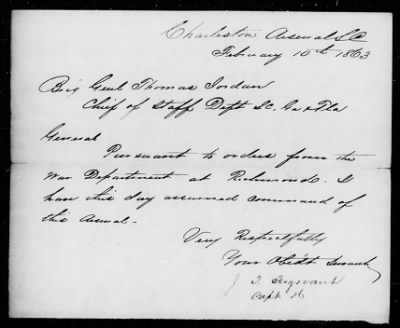 Charleston Arsenal SC
February 10th 1863
Brig Genl Thomas Jordan
Chief of Staff Dept SC. Ga & Fla
General
Pursuant to orders from the
War Department at Richmond. I
have this day assumed command of
this Arsenal.
Very Respectfully
Your Obedt Servant
J. T. Trezevant
Capt